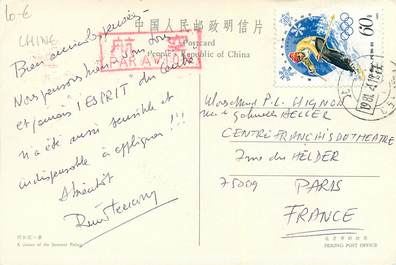 10-E
CHINE
中国人民邮政明信片
Postcard
People's Republic of China
航空
PAR AVION
60分
Bien amicales pensées
Nos pensées pour vous
et jamais "l'ESPRIT" du Centre
n'a été aussi sensible et
indispensable à appliquer !!!
A bientôt
P.L. MIGNON
HELLER
CENTRE FRANCAIS DU THEATRE
7 rue du HELDER
75009 PARIS
FRANCE
A corner of the Summer Palace
PEKING POST OFFICE